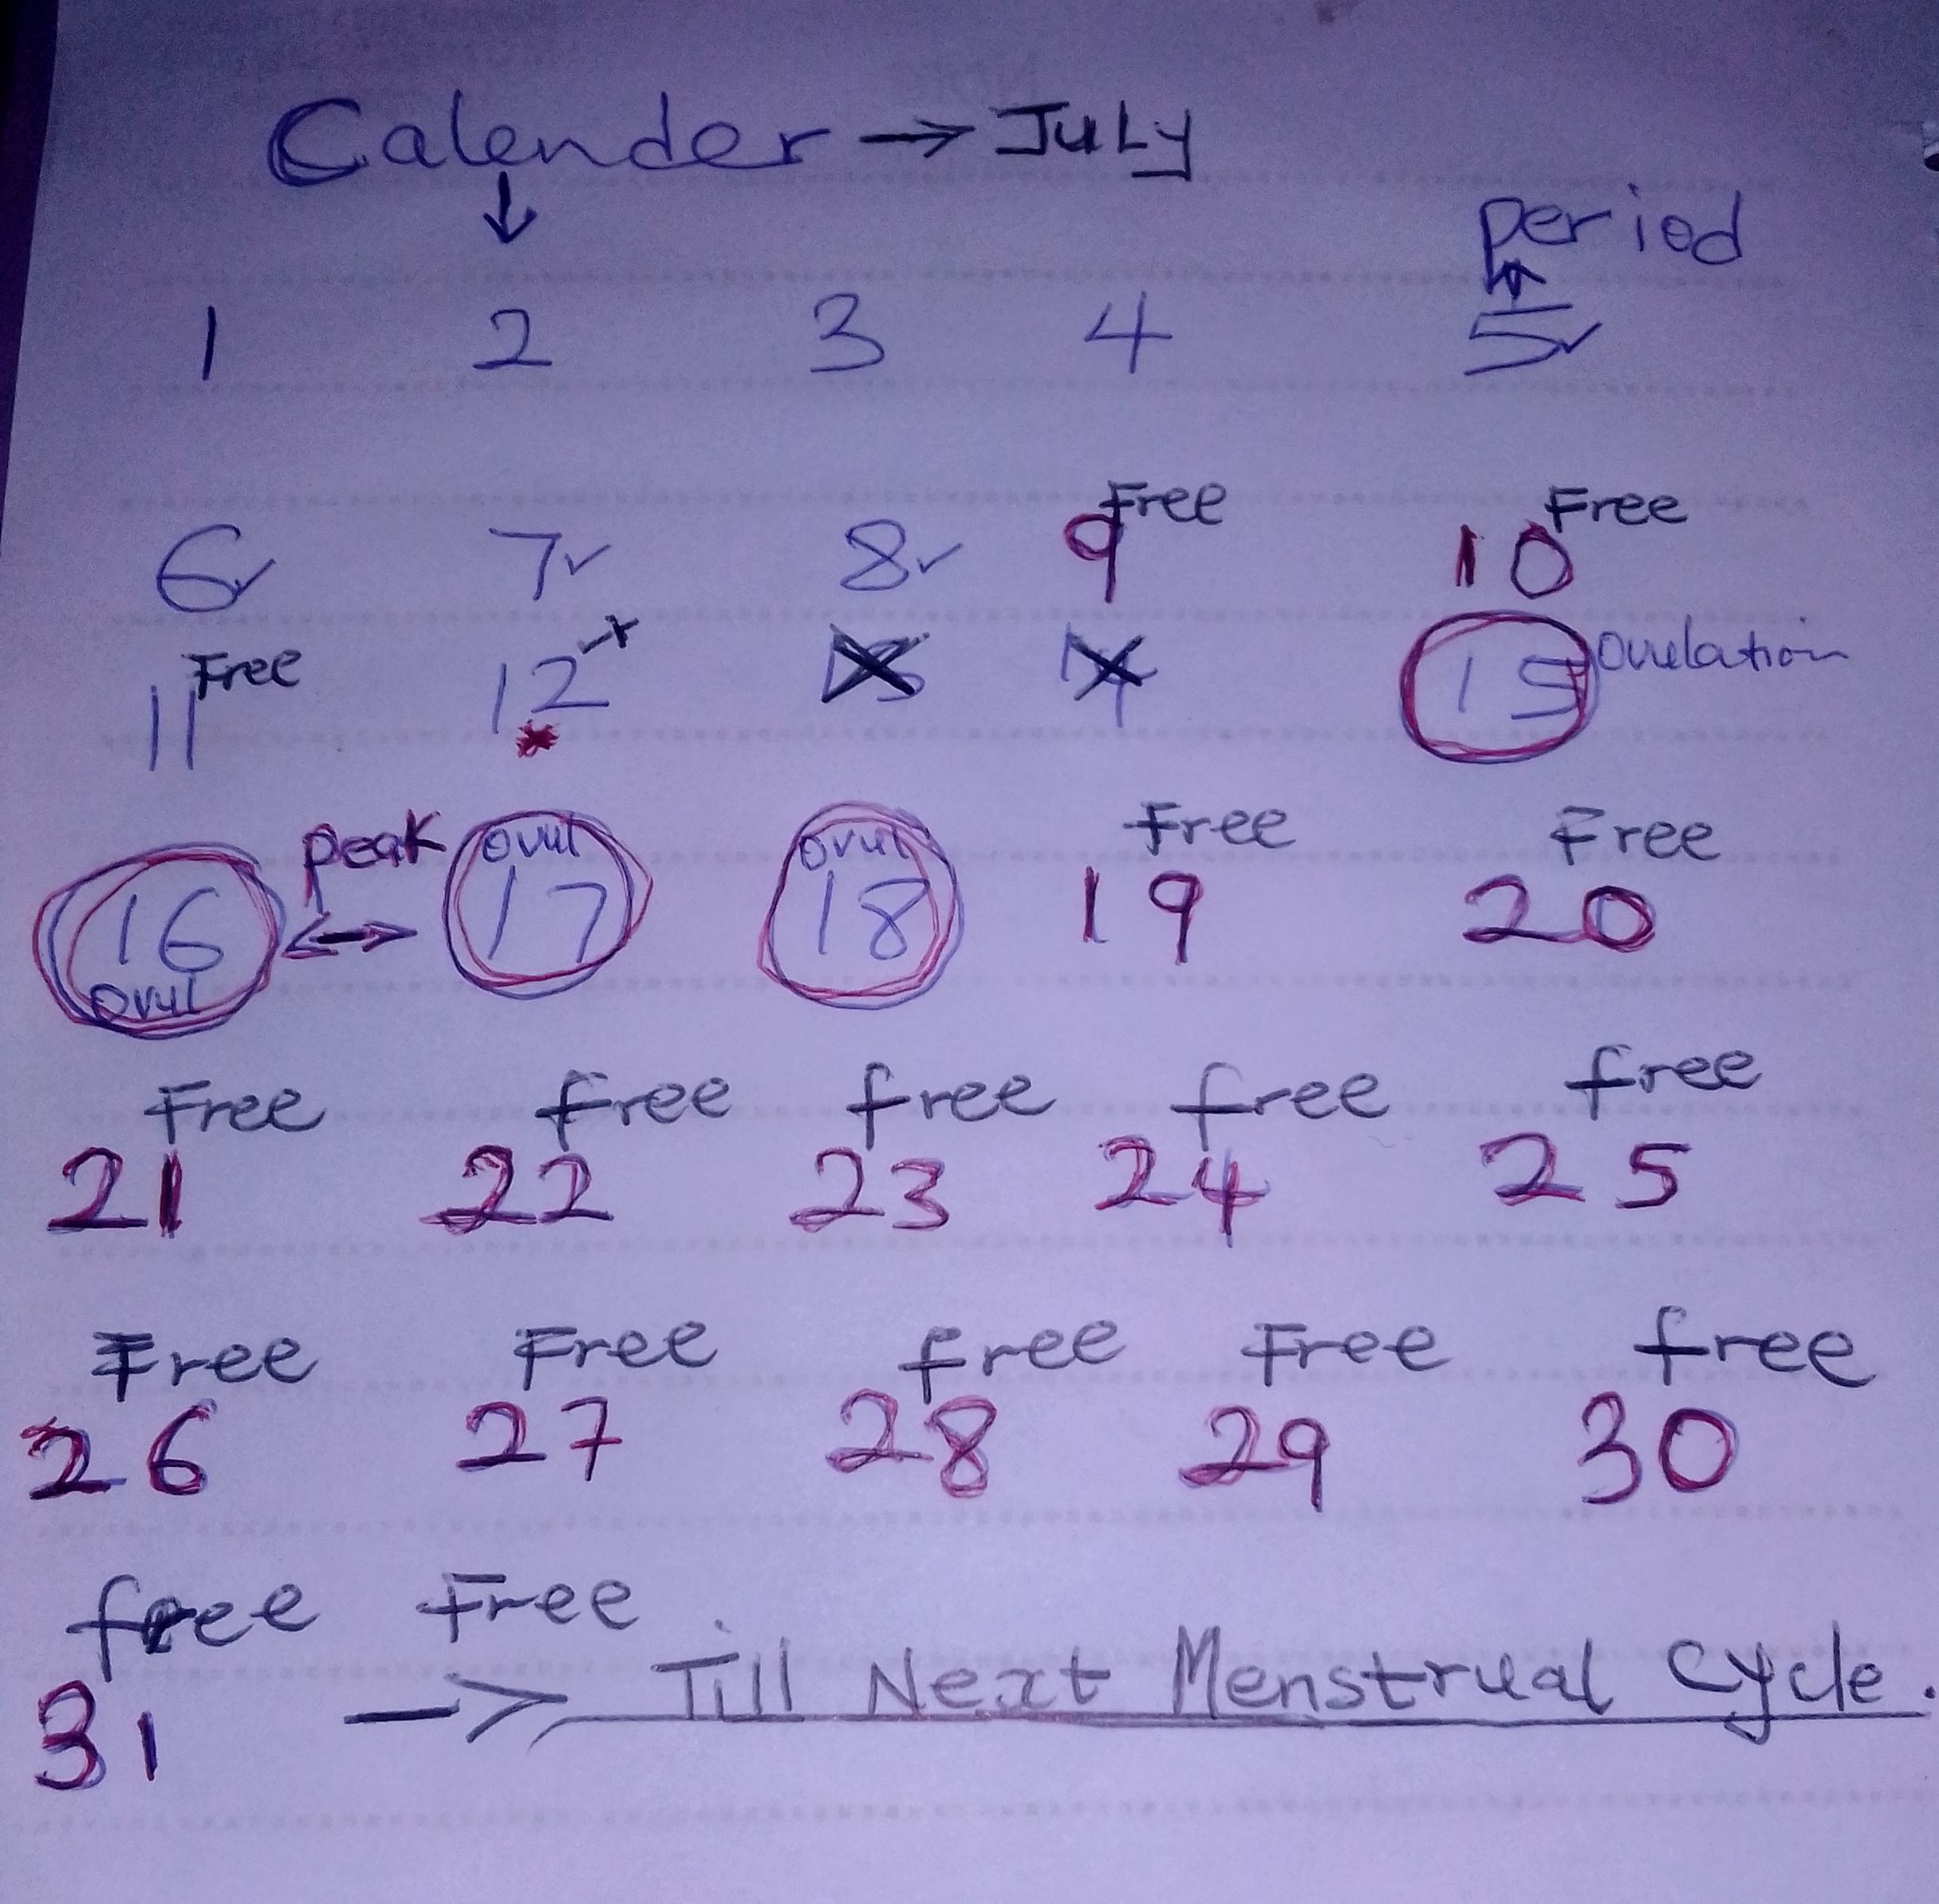 Calender → July
↓
period
↑
1 2 3 4 5✓
Free Free
6✓ 7✓ 8✓ 9 10
Free
11 12✓+ 14 15 Ovulation
*
peak ovul ovul Free Free
16 ↔ 17 18 19 20
ovul
Free free free free free
21 22 23 24 25
Free Free free Free free
26 27 28 29 30
free Free
31 → Till Next Menstrual Cycle.